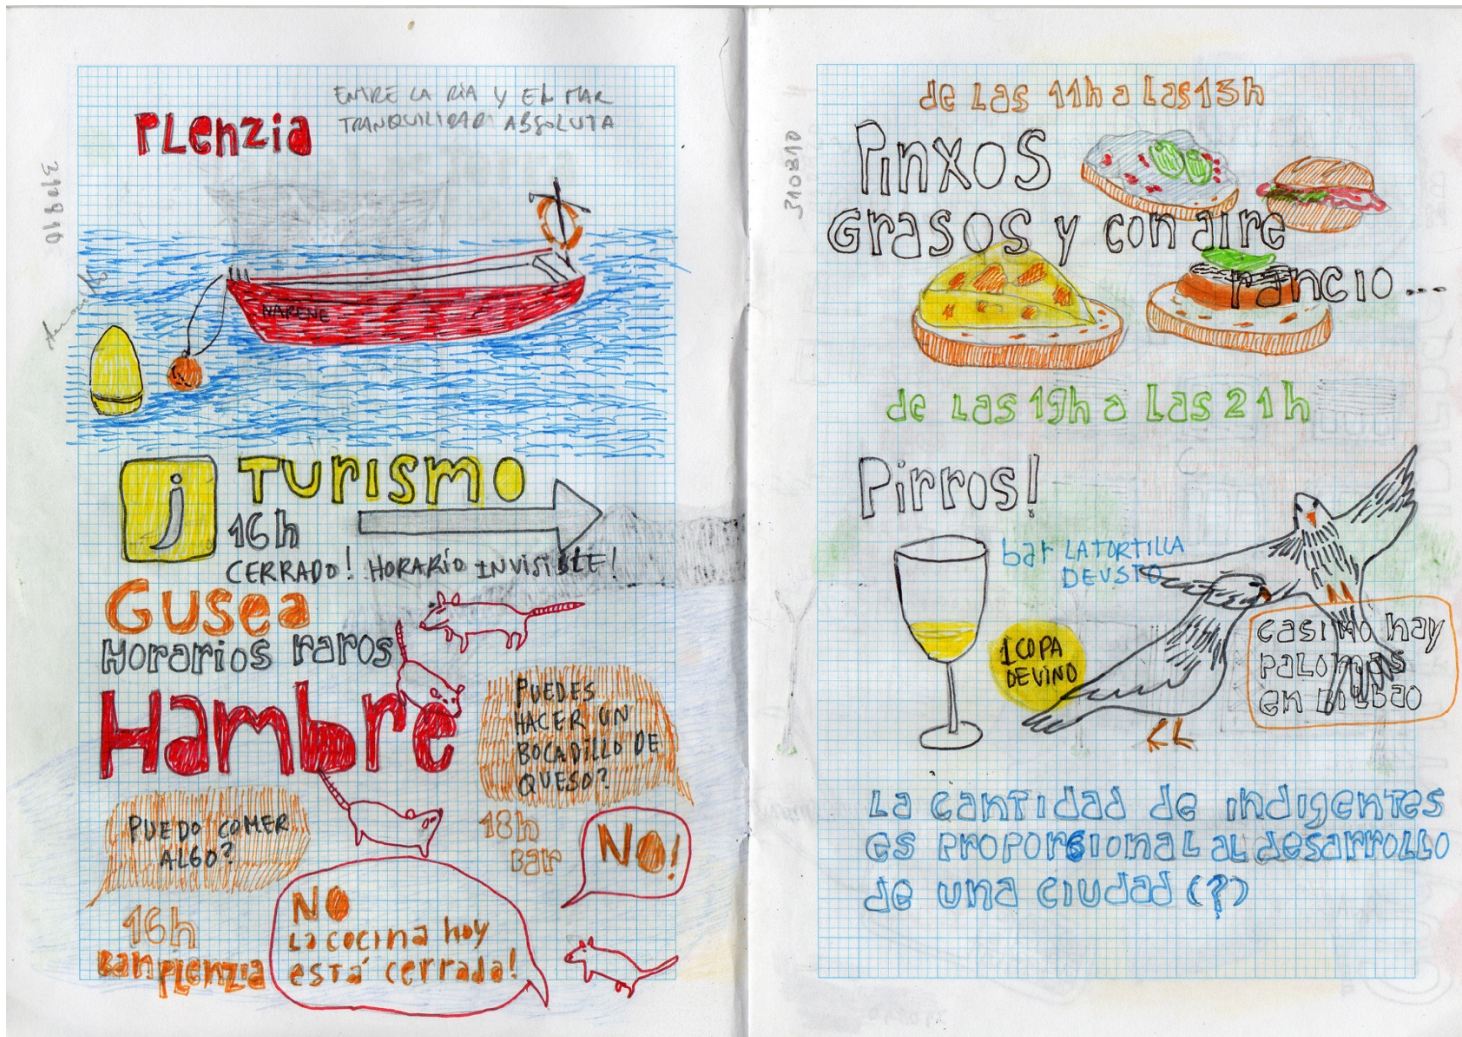 PLenzia
ENTRE LA RIA Y EL MAR
TRANQUILIDAD ABSOLUTA
310810
NARENE
i TURISMO
16h
CERRADO! HORARIO INVISIBLE!
GUSEA
HORARIOS RAROS
Hambre
PUEDES
HACER UN
BOCADILLO DE
QUESO?
PUEDO COMER
ALGO?
18h
BAR
NO!
16h
BAR PLENZIA
NO
La cocina hoy
está cerrada!
310810
de Las 11h a Las 13h
Pinxos
Grasos y con aire
rancio...
de Las 19h a Las 21h
Pirros!
bar LA TORTILLA
DEUSTO
1 COPA
DE VINO
casi no hay
palomas
en Bilbao
La cantidad de indigentes
es proporsional al desarrollo
de una ciudad (?)